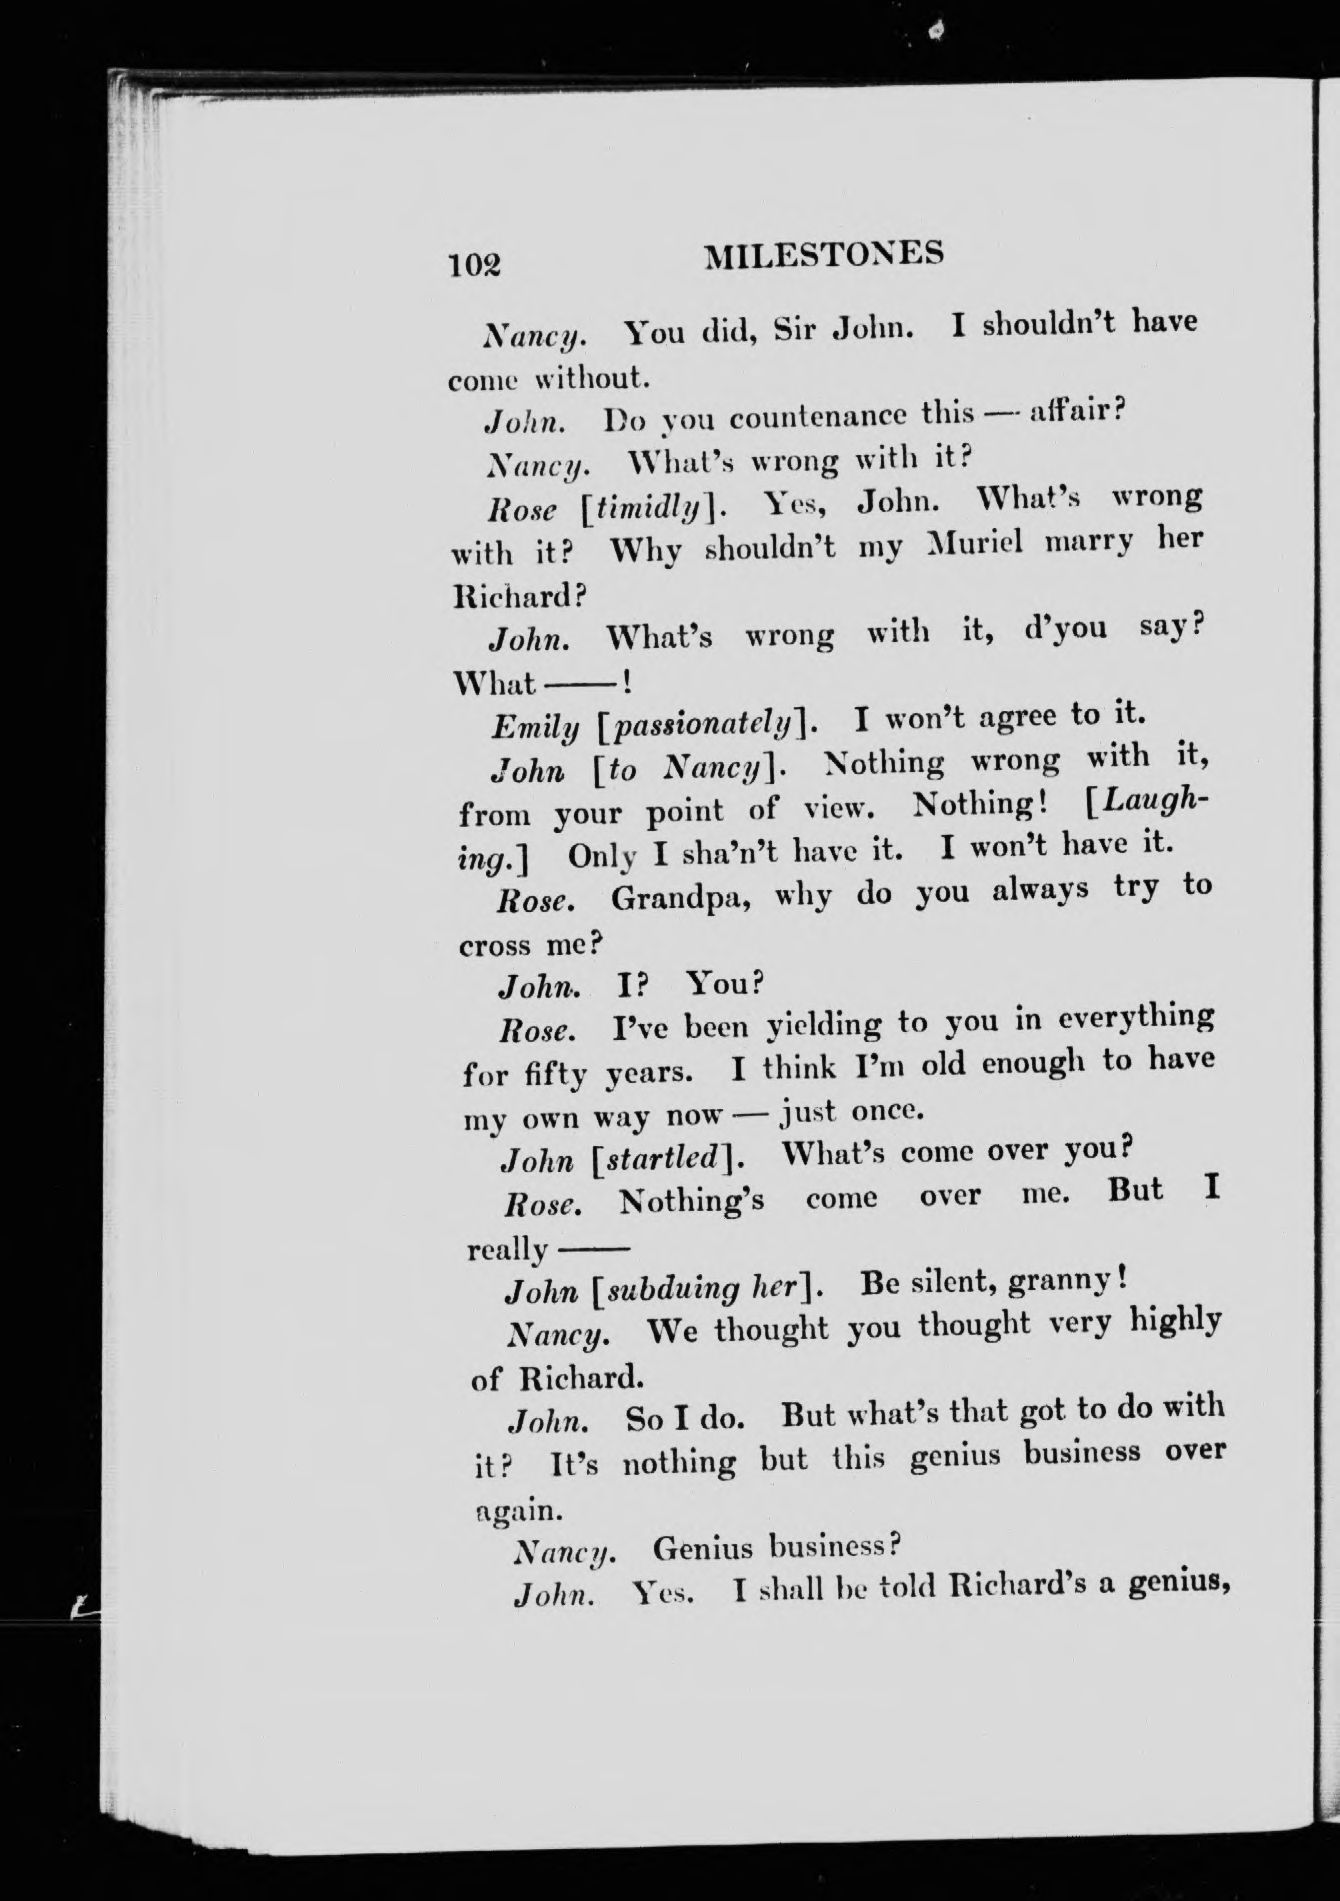 102 MILESTONES
Nancy. You did, Sir John. I shouldn't have
come without.
John. Do you countenance this — affair?
Nancy. What's wrong with it?
Rose [timidly]. Yes, John. What's wrong
with it? Why shouldn't my Muriel marry her
Richard?
John. What's wrong with it, d'you say?
What ——!
Emily [passionately]. I won't agree to it.
John [to Nancy]. Nothing wrong with it,
from your point of view. Nothing! [Laugh-
ing.] Only I sha'n't have it. I won't have it.
Rose. Grandpa, why do you always try to
cross me?
John. I? You?
Rose. I've been yielding to you in everything
for fifty years. I think I'm old enough to have
my own way now — just once.
John [startled]. What's come over you?
Rose. Nothing's come over me. But I
really ——
John [subduing her]. Be silent, granny!
Nancy. We thought you thought very highly
of Richard.
John. So I do. But what's that got to do with
it? It's nothing but this genius business over
again.
Nancy. Genius business?
John. Yes. I shall be told Richard's a genius,